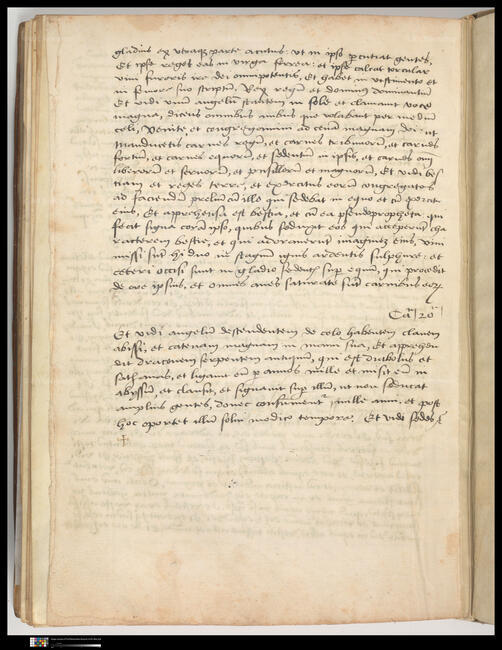 gladius ex utraqz parte acutus: ut in ipso percutiat gentes,
Et ipse reget eas in virga ferrea: et ipse calcat torcular
vini furoris ire dei omnipotentis, Et habet in vestimento et
in femore suo scriptum, Rex regum et dominus dominantium
Et vidi unum angelum stantem in sole et clamavit voce
magna, dicens omnibus avibus que volabant per medium
celi, Venite et congregamini ad cenam magnam dei: ut
manducetis carnes regum, et carnes tribunorum, et carnes
fortium, et carnes equorum, et sedentium in ipsis, et carnes omnium
liberorum et servorum, et pusillorum et magnorum, Et vidi bes
tiam et reges terre, et exercitus eorum congregatos
ad faciendum prelium cum illo qui sedebat in equo et cum exercitu
eius, Et apprehensa est bestia, et cum ea pseudopropheta, qui
fecit signa coram ipso, quibus seduxit eos qui acceperunt cha
racterem bestie, et qui adoraverunt imaginem eius, vivi
missi sunt hi duo in stagnum ignis ardentis sulphure: et
ceteri occisi sunt in gladio sedentis super equum, qui procedit
de ore ipsius, et omnes aves saturate sunt carnibus eorum
Ca 20
Et vidi angelum descendentem de celo habentem clavem
abissi, et catenam magnam in manu sua, Et apprehen
dit draconem serpentem antiquum, qui est diabolus et
sathanas, et ligavit eum per annos mille et misit eum in
abyssum, et clausit, et signavit super illum, ut non seducat
amplius gentes, donec consumentur mille anni, et post
hoc oportet illum solvi modico tempore, Et vidi sedes